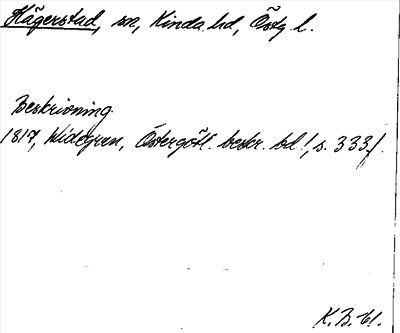 Hägerstad, sn, Kinda hd, Östg l.
Beskrivning
1817, Widegren, Östergötl. beskr. bd 1, s. 333f.
K.B. 61.